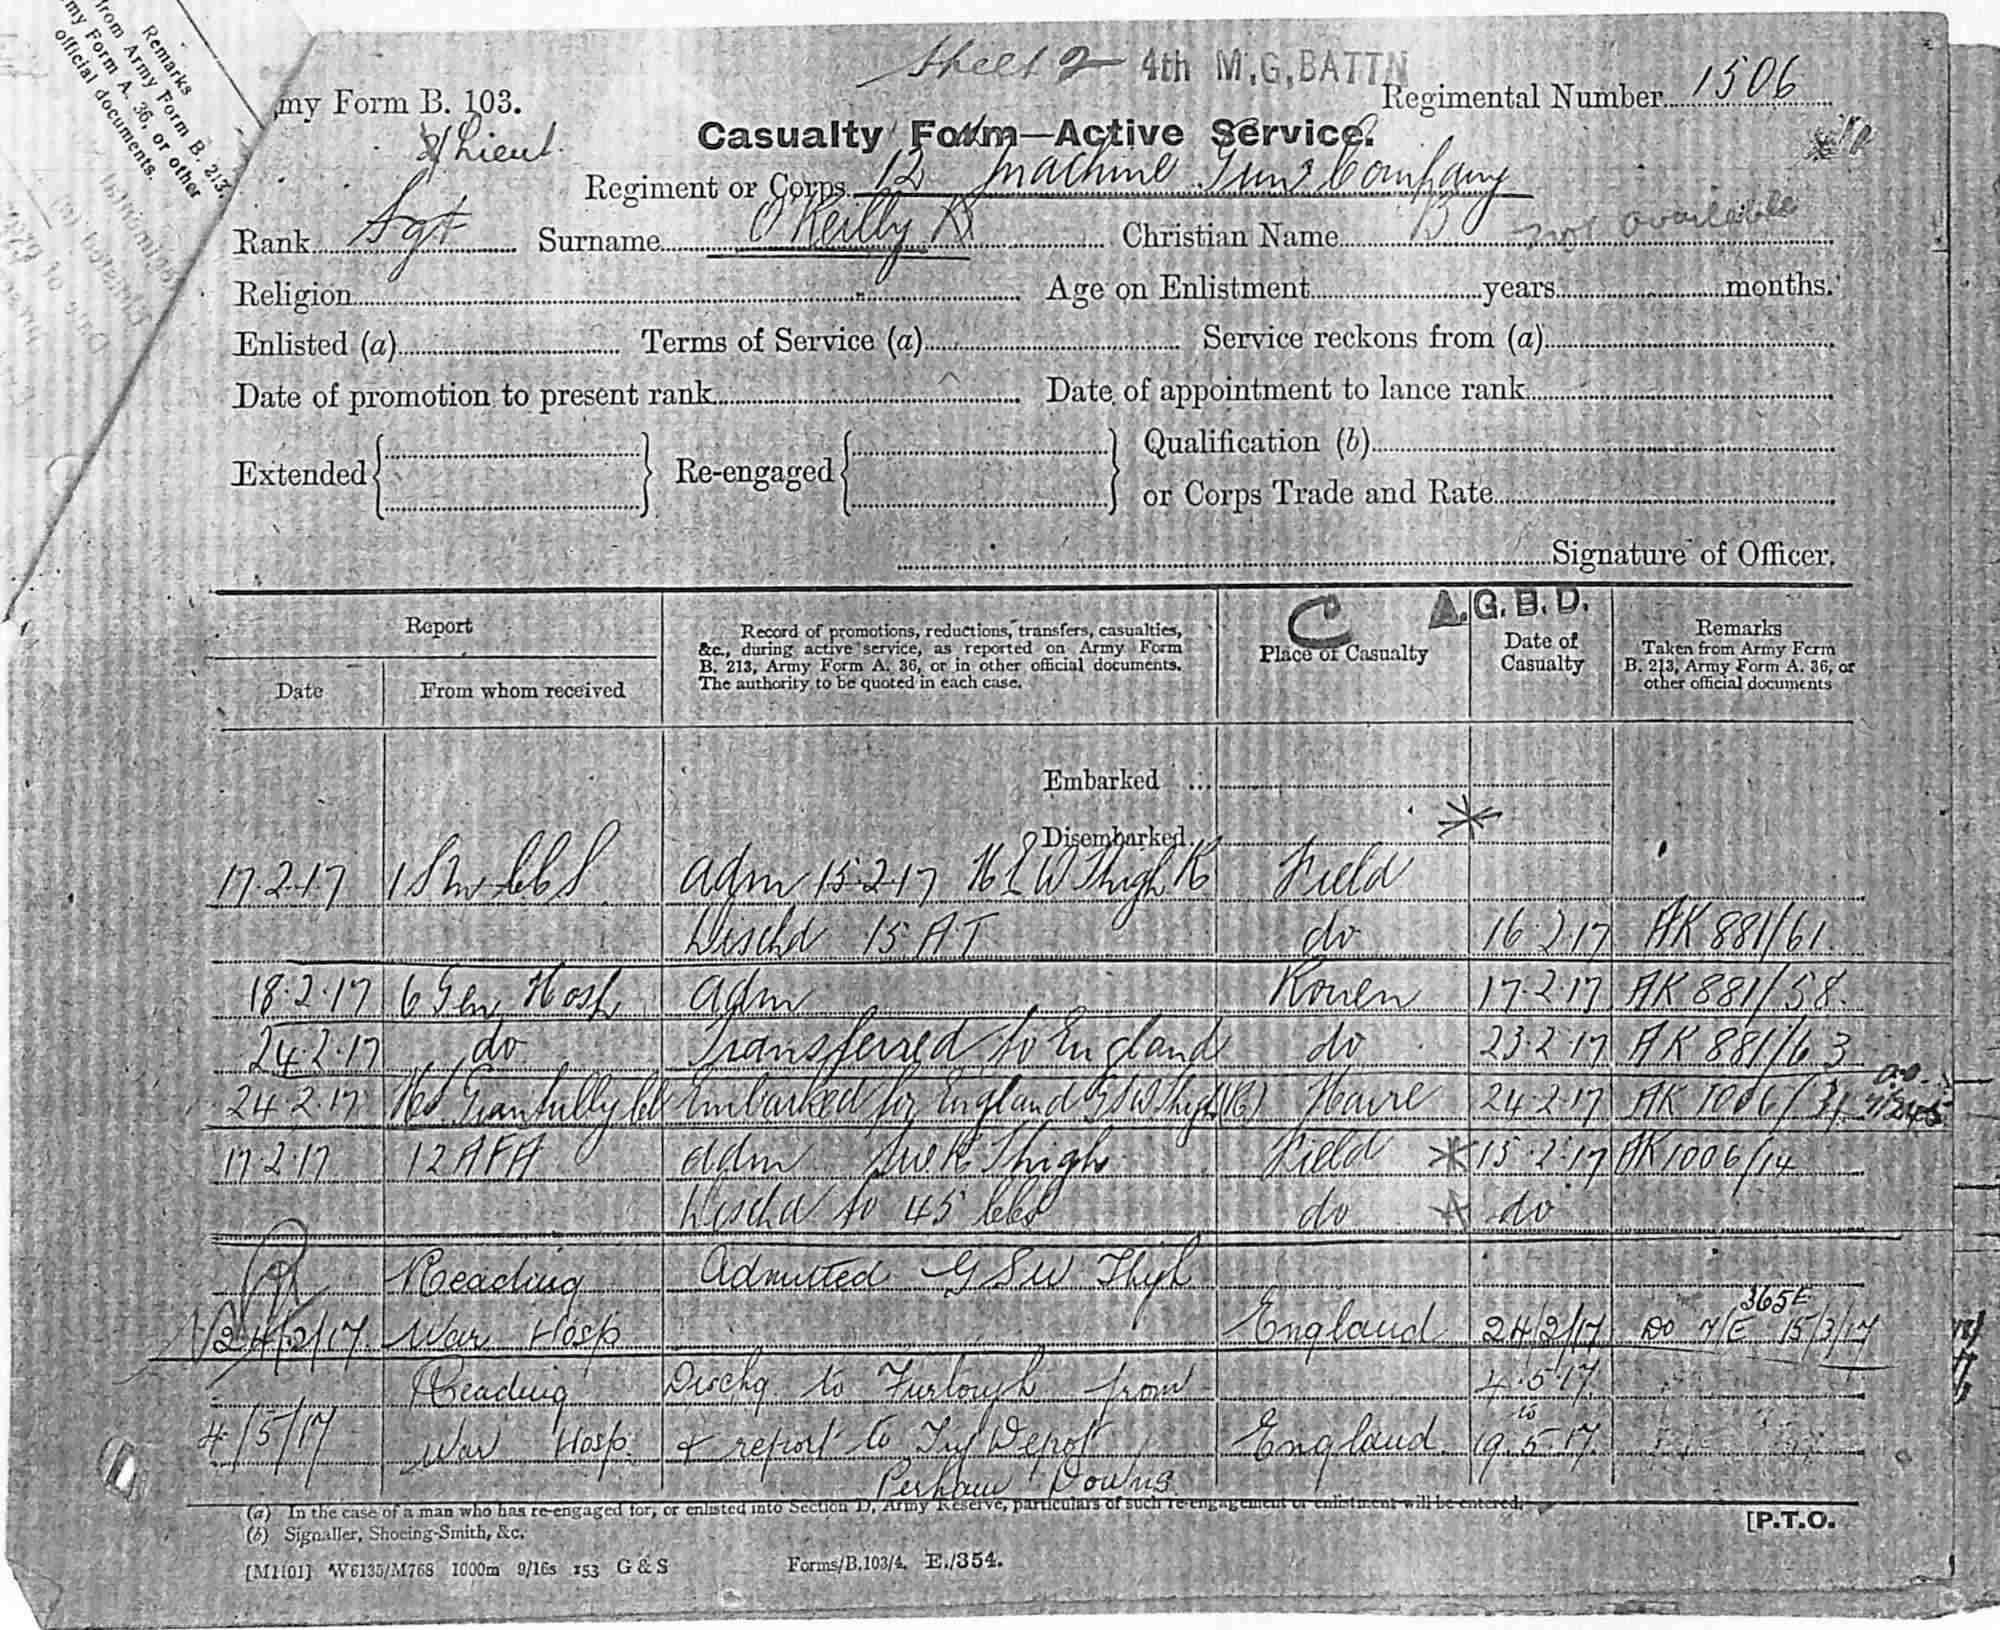 Remarks
from Army Form B. 213,
my Form A. 36, or other
official documents.
Sheet 2 4th M.G. BATTN
my Form B. 103.
Regimental Number 1506
2/Lieut.
Casualty Form—Active Service.
Regiment or Corps 12 Machine Gun Company
Rank Sgt Surname O'Reilly B Christian Name B not available
Religion Age on Enlistment years months.
Enlisted (a) Terms of Service (a) Service reckons from (a)
Date of promotion to present rank Date of appointment to lance rank
Extended Re-engaged Qualification (b)
or Corps Trade and Rate
Signature of Officer.
C A.G.B.D.
Report
Date
From whom received
Record of promotions, reductions, transfers, casualties, &c., during active service, as reported on Army Form B. 213, Army Form A. 36, or in other official documents. The authority to be quoted in each case.
Place of Casualty
Date of Casualty
Remarks
Taken from Army Form B. 213, Army Form A. 36, or other official documents
Embarked ...
Disembarked
17.2.17 adm 15.2.17 Thigh R Field
Dischd 15 AT do 16.2.17 AK 881/61
18.2.17 6 Gen Hosp adm Rouen 17.2.17 AK 881/58.
24.2.17 do Transferred to England do 23.2.17 AK 881/63
24.2.17 Embarked for England GSW Thigh (R) Havre 24.2.17 AK 1006/31
17.2.17 12 AFA adm SW R Thigh Field * 15.2.17 AK 1006/14
Dischd to 45 CCS do * do
Reading Admitted GSW Thigh
24/2/17. War Hosp England 24/2/17 DO 7/E 365E 15/3/17
Reading Dischg to Furlough from 4.5.17
4/5/17 War Hosp. & report to Trg Depot England to 19.5.17
Perham Downs
(a) In the case of a man who has re-engaged for, or enlisted into Section D, Army Reserve, particulars of such re-engagement or enlistment will be entered.
(b) Signaller, Shoeing-Smith, &c.
[P.T.O.
[M1101] W6135/M768 1000m 9/16s 153 G & S Forms/B.103/4. E./354.